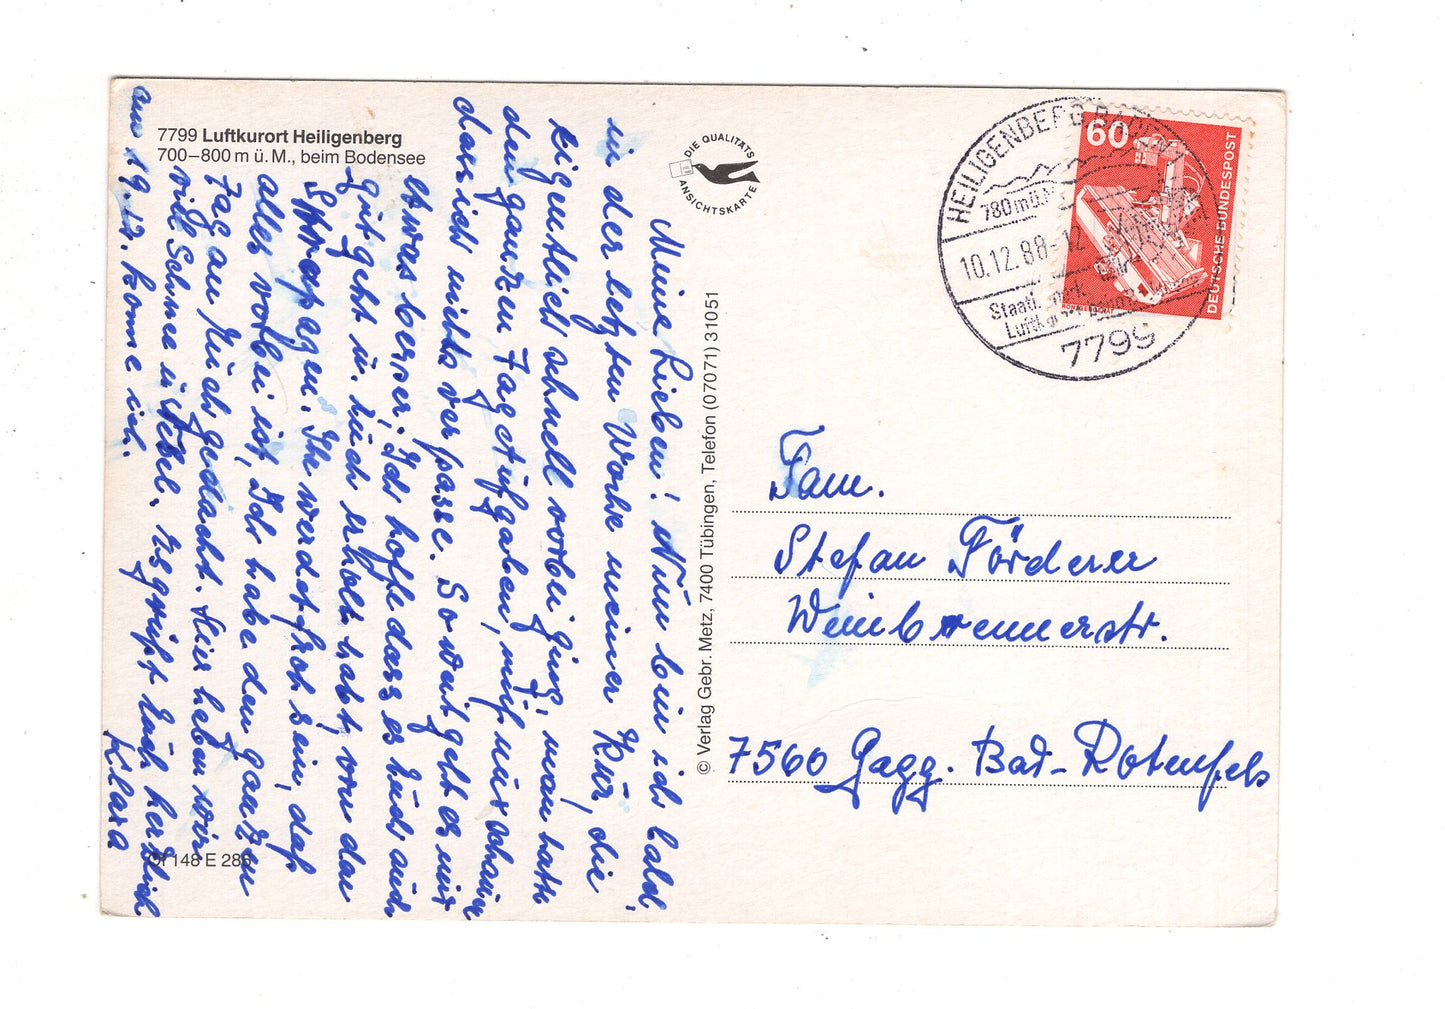 7799 Luftkurort Heiligenberg
700–800 m ü. M., beim Bodensee
DIE QUALITÄTS
ANSICHTSKARTE
HEILIGENBERG BADEN
780 m ü. M.
10.12.88-12
Staatl. anerk.
Luftkurort
7799
60
DEUTSCHE BUNDESPOST
Meine Lieben! Nun bin ich bald
in der letzten Woche meiner Kur, die
eigentlich schnell vorbei ging, man hatte
den ganzen Tag Aufgaben, muß nur schauen
dass ich nichts verpasse. Soweit geht es mir
etwas besser. Ich hoffe dass es Euch auch
gut geht u. Euch erholt habt, von den
Strapazen. Ihr werdet froh sein, daß
alles vorbei ist, Ich habe den ganzen
Tag an Euch gedacht. Hier haben wir
viel Schnee u. Nebel. Es grüßt Euch herzlich
am 19.12. kome ich. Klara
© Verlag Gebr. Metz, 7400 Tübingen, Telefon (07071) 31051
148 E 286
Fam.
Stefan Förderer
Weinbrennerstr.
7560 Gagg. Bad-Rotenfels